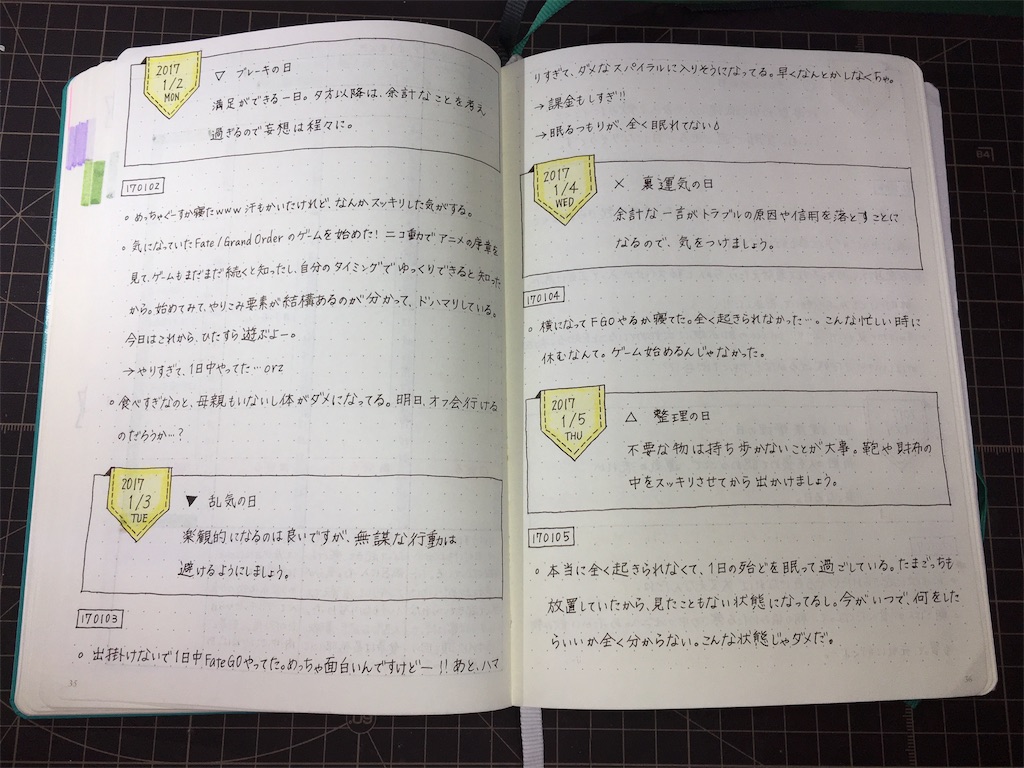 2017
1/2
MON
▽ ブレーキの日
満足ができる一日。夕方以降は、余計なことを考え
過ぎるので妄想は程々に。
170102
。めっちゃぐーすか寝たwww 汗もかいたけれど、なんかスッキリした気がする。
。気になっていたFate/Grand Orderのゲームを始めた!ニコ動でアニメの序章を
見て、ゲームもまだまだ続くと知ったし、自分のタイミングでゆっくりできると知った
から。始めてみて、やりこみ要素が結構あるのが分かって、ドハマりしている。
今日はこれから、ひたすら遊ぶよー。
→やりすぎて、1日中やってた…orz
。食べすぎなのと、母親もいないし体がダメになってる。明日、オフ会行ける
のだろうか…?
2017
1/3
TUE
▼ 乱気の日
楽観的になるのは良いですが、無謀な行動は
避けるようにしましょう。
170103
。出掛けないで1日中FateGOやってた。めっちゃ面白いんですけどー!!あと、ハマ
35
りすぎて、ダメなスパイラルに入りそうになってる。早くなんとかしなくちゃ。
→課金もしすぎ!!
→眠るつもりが、全く眠れてない
2017
1/4
WED
× 裏運気の日
余計な一言がトラブルの原因や信用を落とすことに
なるので、気をつけましょう。
170104
。横になってFGOやるか寝てた。全く起きられなかった…。こんな忙しい時に
休むなんて。ゲーム始めるんじゃなかった。
2017
1/5
THU
△ 整理の日
不要な物は持ち歩かないことが大事。鞄や財布の
中をスッキリさせてから出かけましょう。
170105
。本当に全く起きられなくて、1日の殆どを眠って過ごしている。たまごっちも
放置していたから、見たこともない状態になってるし。今がいつで、何をした
らいいか全く分からない。こんな状態じゃダメだ。
36
B4